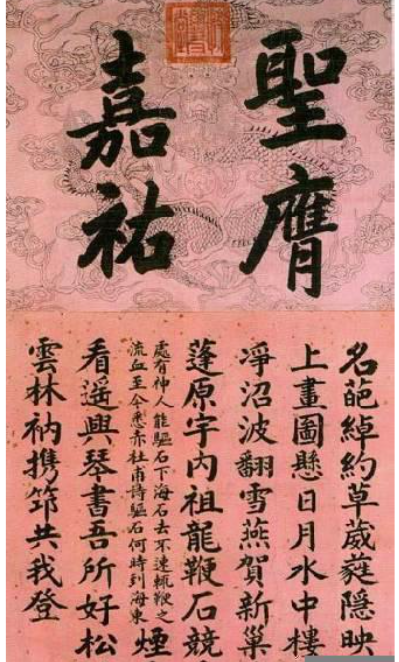 聖膺
嘉祐
名葩綽約草葳蕤隱映
上畫圖懸日月水中樓
淨沼波翻雪燕賀新巢
蓬原宇内祖龍鞭石競
處有神人能驅石下海石去不速輒鞭之
流血至今悉赤杜甫詩驅石何時到海東
煙
看遥興琴書吾所好松
雲林衲携笻共我登